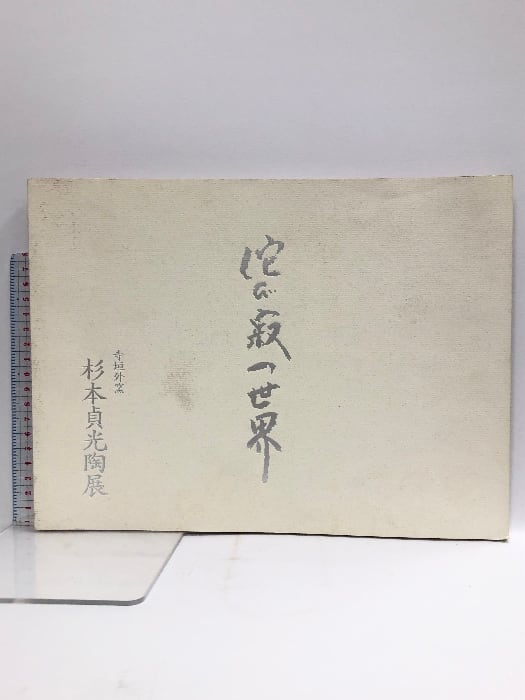 侘び寂の世界
寺垣外窯
杉本貞光陶展